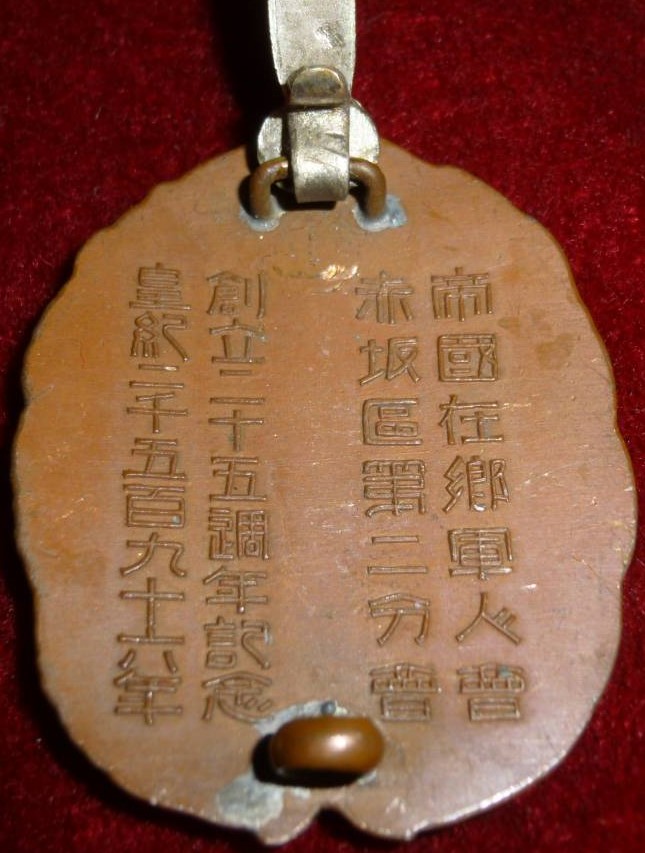 帝國在鄉軍人會
赤坂區第二分會
創立二十五週年記念
皇紀二千五百九十六年